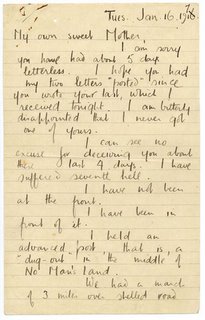 Tues. Jan. 16, 1917
My own sweet Mother,
I am sorry
you have had about 5 days
letterless. I hope you had
my two letters "posted" since
you wrote your last, which I
received tonight. I am bitterly
disappointed that I never got
one of yours.
I can see no
excuse for deceiving you about
these last 4 days. I have
suffered seventh hell.
I have not been
at the front.
I have been in
front of it.
I held an
advanced post, that is, a
"dug-out" in the middle of
No Man's Land.
We had a march
of 3 miles over shelled road